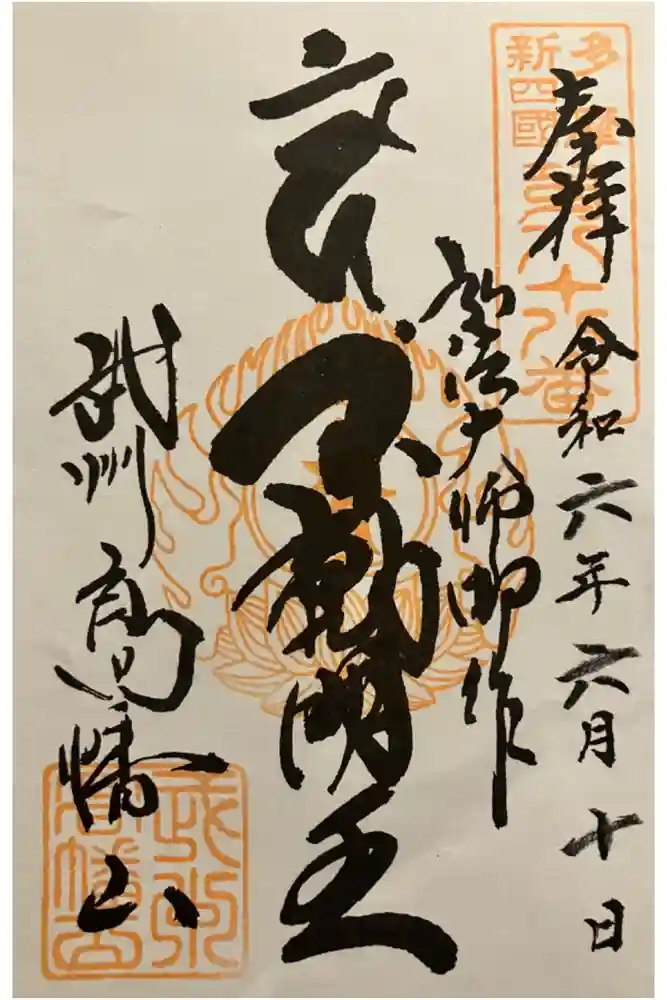 奉拝
令和六年六月十日
弘法大師御作
不動明王
武州
高幡山
多摩
新四國
武州
高幡山